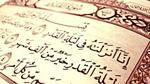 إِنَّا أَنزَلْنَٰهُ فِى لَيْلَةِ ٱلْقَدْرِ
لَيْلَةُ ٱلْقَدْرِ خَيْرٌ مِّنْ أَلْفِ شَهْرٍ
مِّن كُلِّ